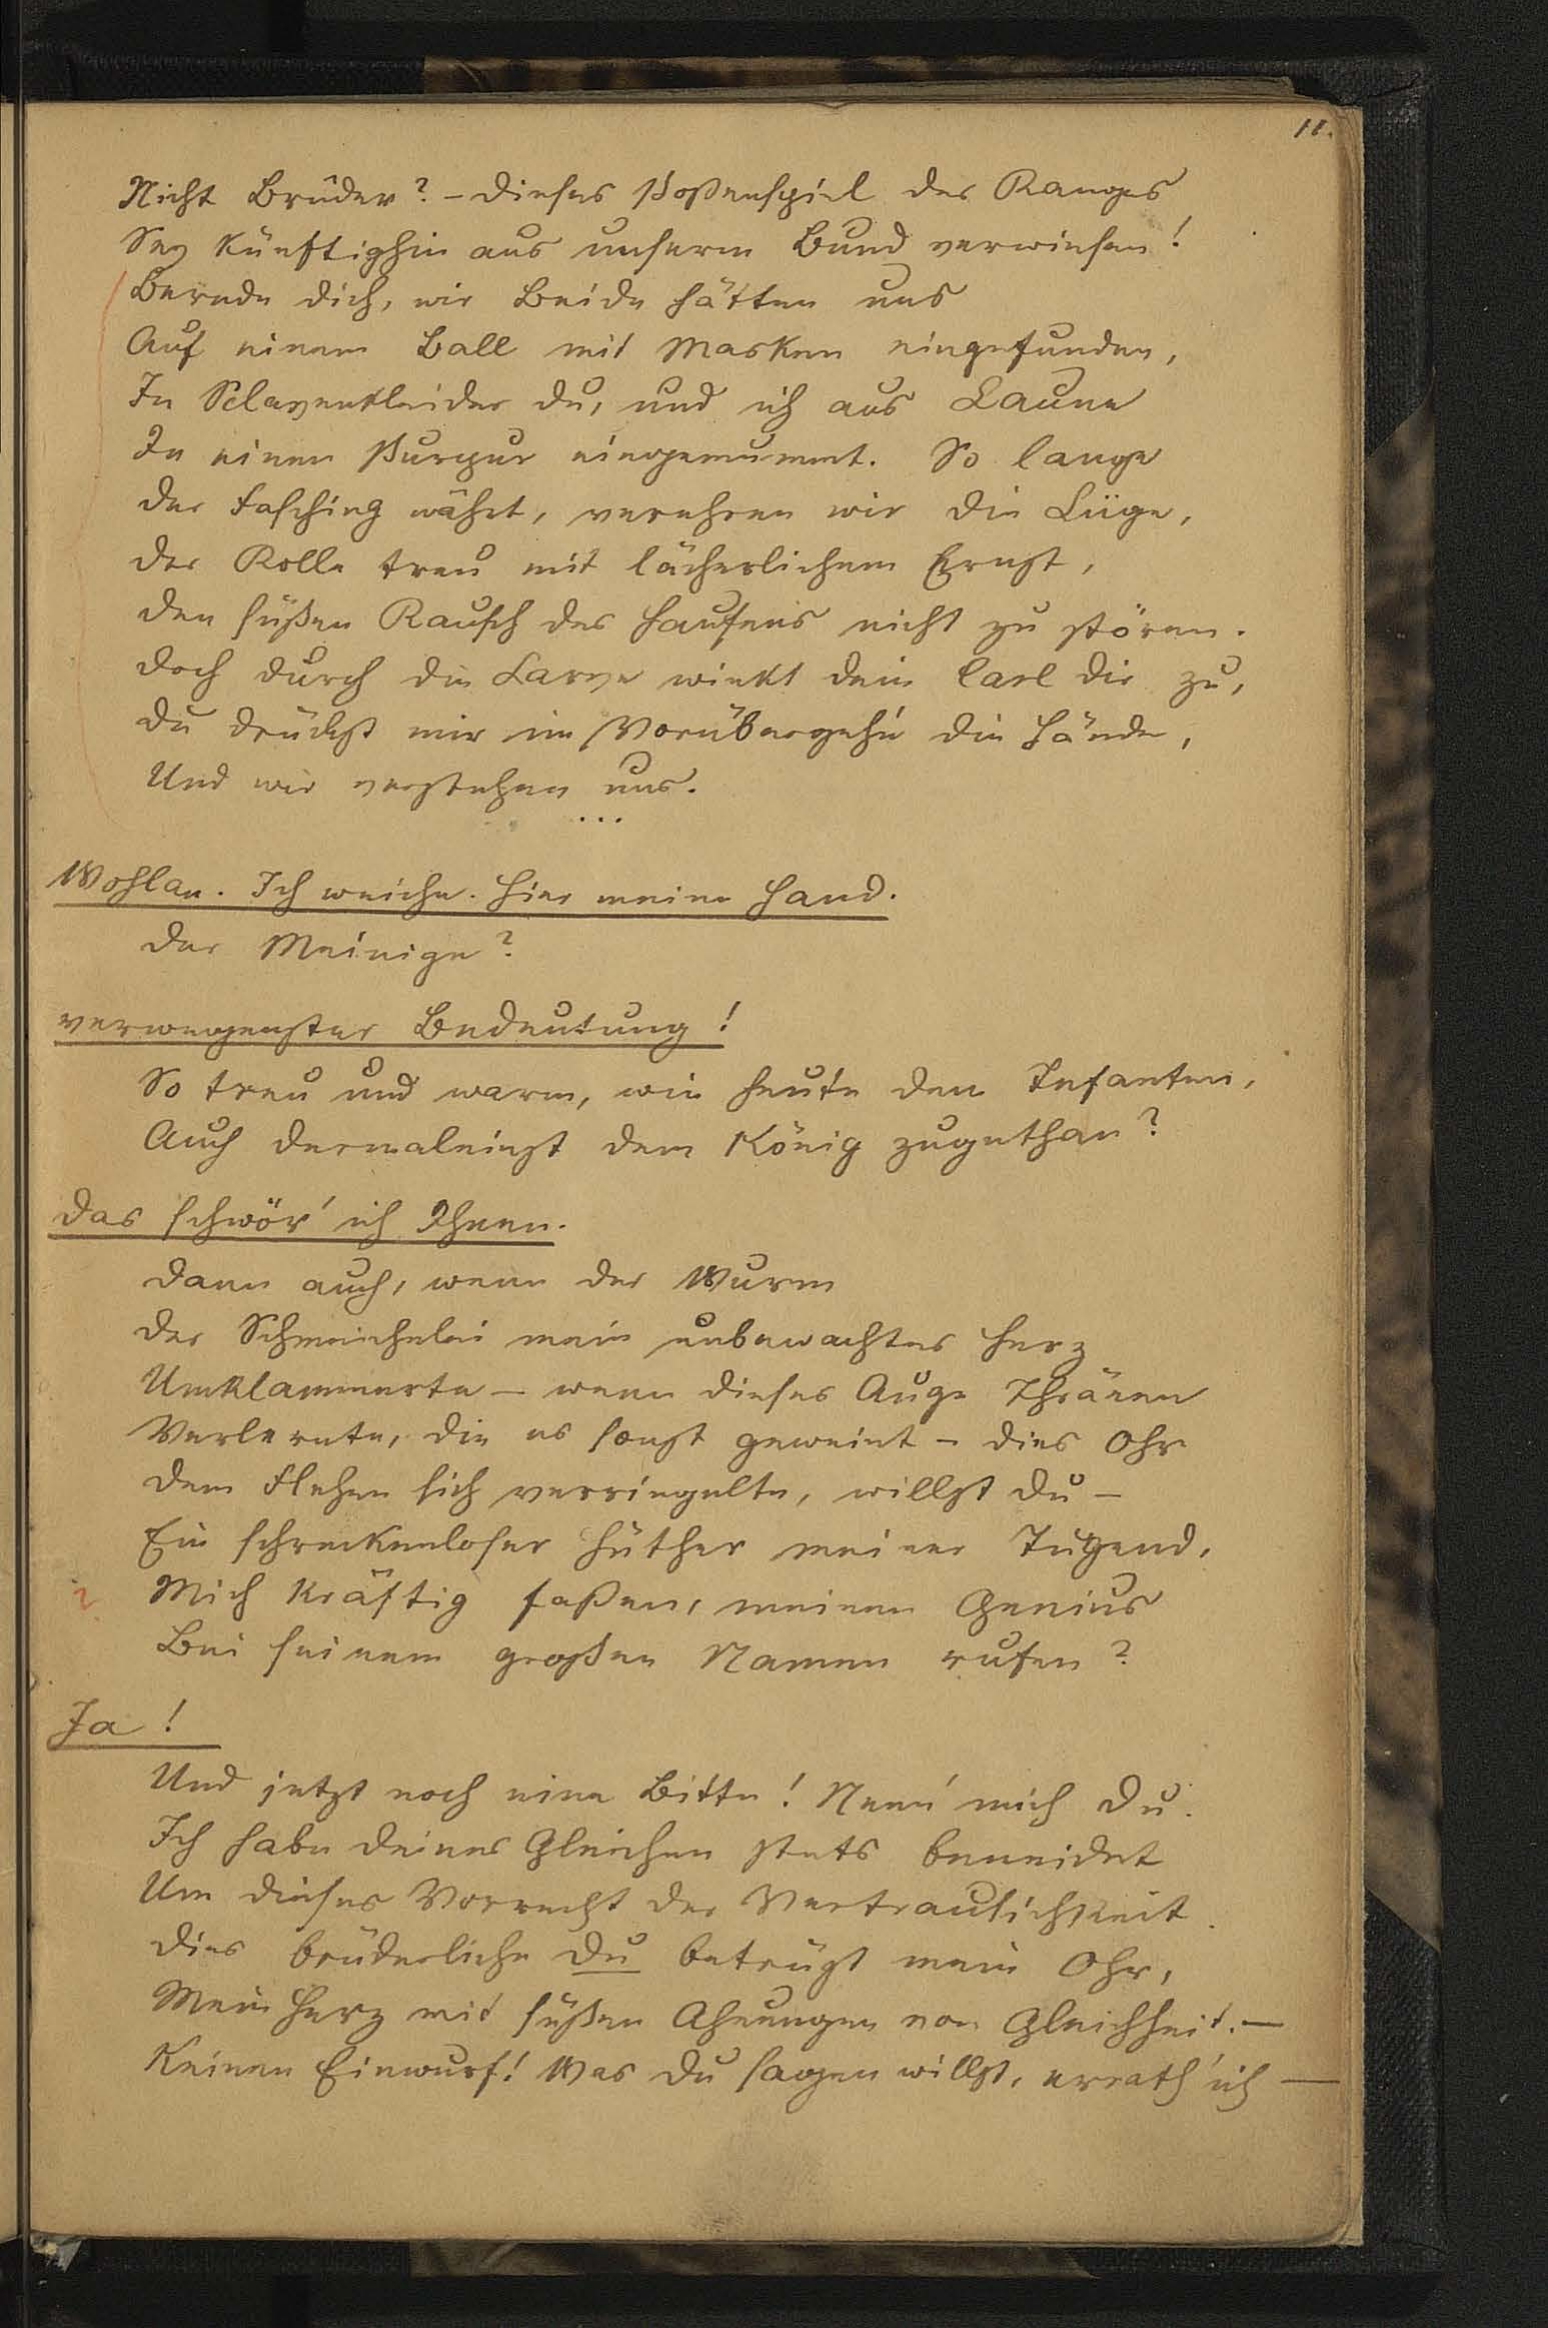 11.
Nicht Brüder? – Dieses Poßenspiel des Ranges
Sey künftighin aus unserm Bund verwiesen!
Berede dich, wir Beide hätten uns
Auf einem Ball mit Masken eingefunden,
In Sclavenkleider du, und ich aus Laune
In einen Purpur eingemummt. So lange
Der Fasching währt, verehren wir die Lüge,
Der Rolle treu mit lächerlichem Ernst,
Den süßen Rausch des Haufens nicht zu stören.
Doch durch die Larve winkt dein Carl dir zu,
Du drückst mir im Vorübergehn' die Hände,
Und wir verstehen uns.
...
Wohlan. Ich weiche. Hier meine Hand.
Der Meinige?
verwegenster Bedeutung!
So treu und warm, wie heute dem Infanten,
Auch dermaleinst dem König zugethan?
Das schwör' ich Ihnen.
Dann auch, wenn der Wurm
Der Schmeichelei mein unbewachtes Herz
Umklammerte – wenn dieses Auge Thränen
Verlernte, die es sonst geweint – dies Ohr
Dem Flehen sich verriegelte, willst du –
Ein schreckenloser Hüther meiner Tugend,
Mich kräftig faßen, meinen Genius
Bei seinem großen Namen rufen?
Ja!
Und jetzt noch eine Bitte! Nenn' mich Du.
Ich habe deines Gleichen stets beneidet
Um dieses Vorrecht der Vertraulichkeit.
Dies brüderliche Du betrügt mein Ohr,
Mein Herz mit süßen Ahnungen von Gleichheit. –
Keinen Einwurf! Was du sagen willst, errath' ich –